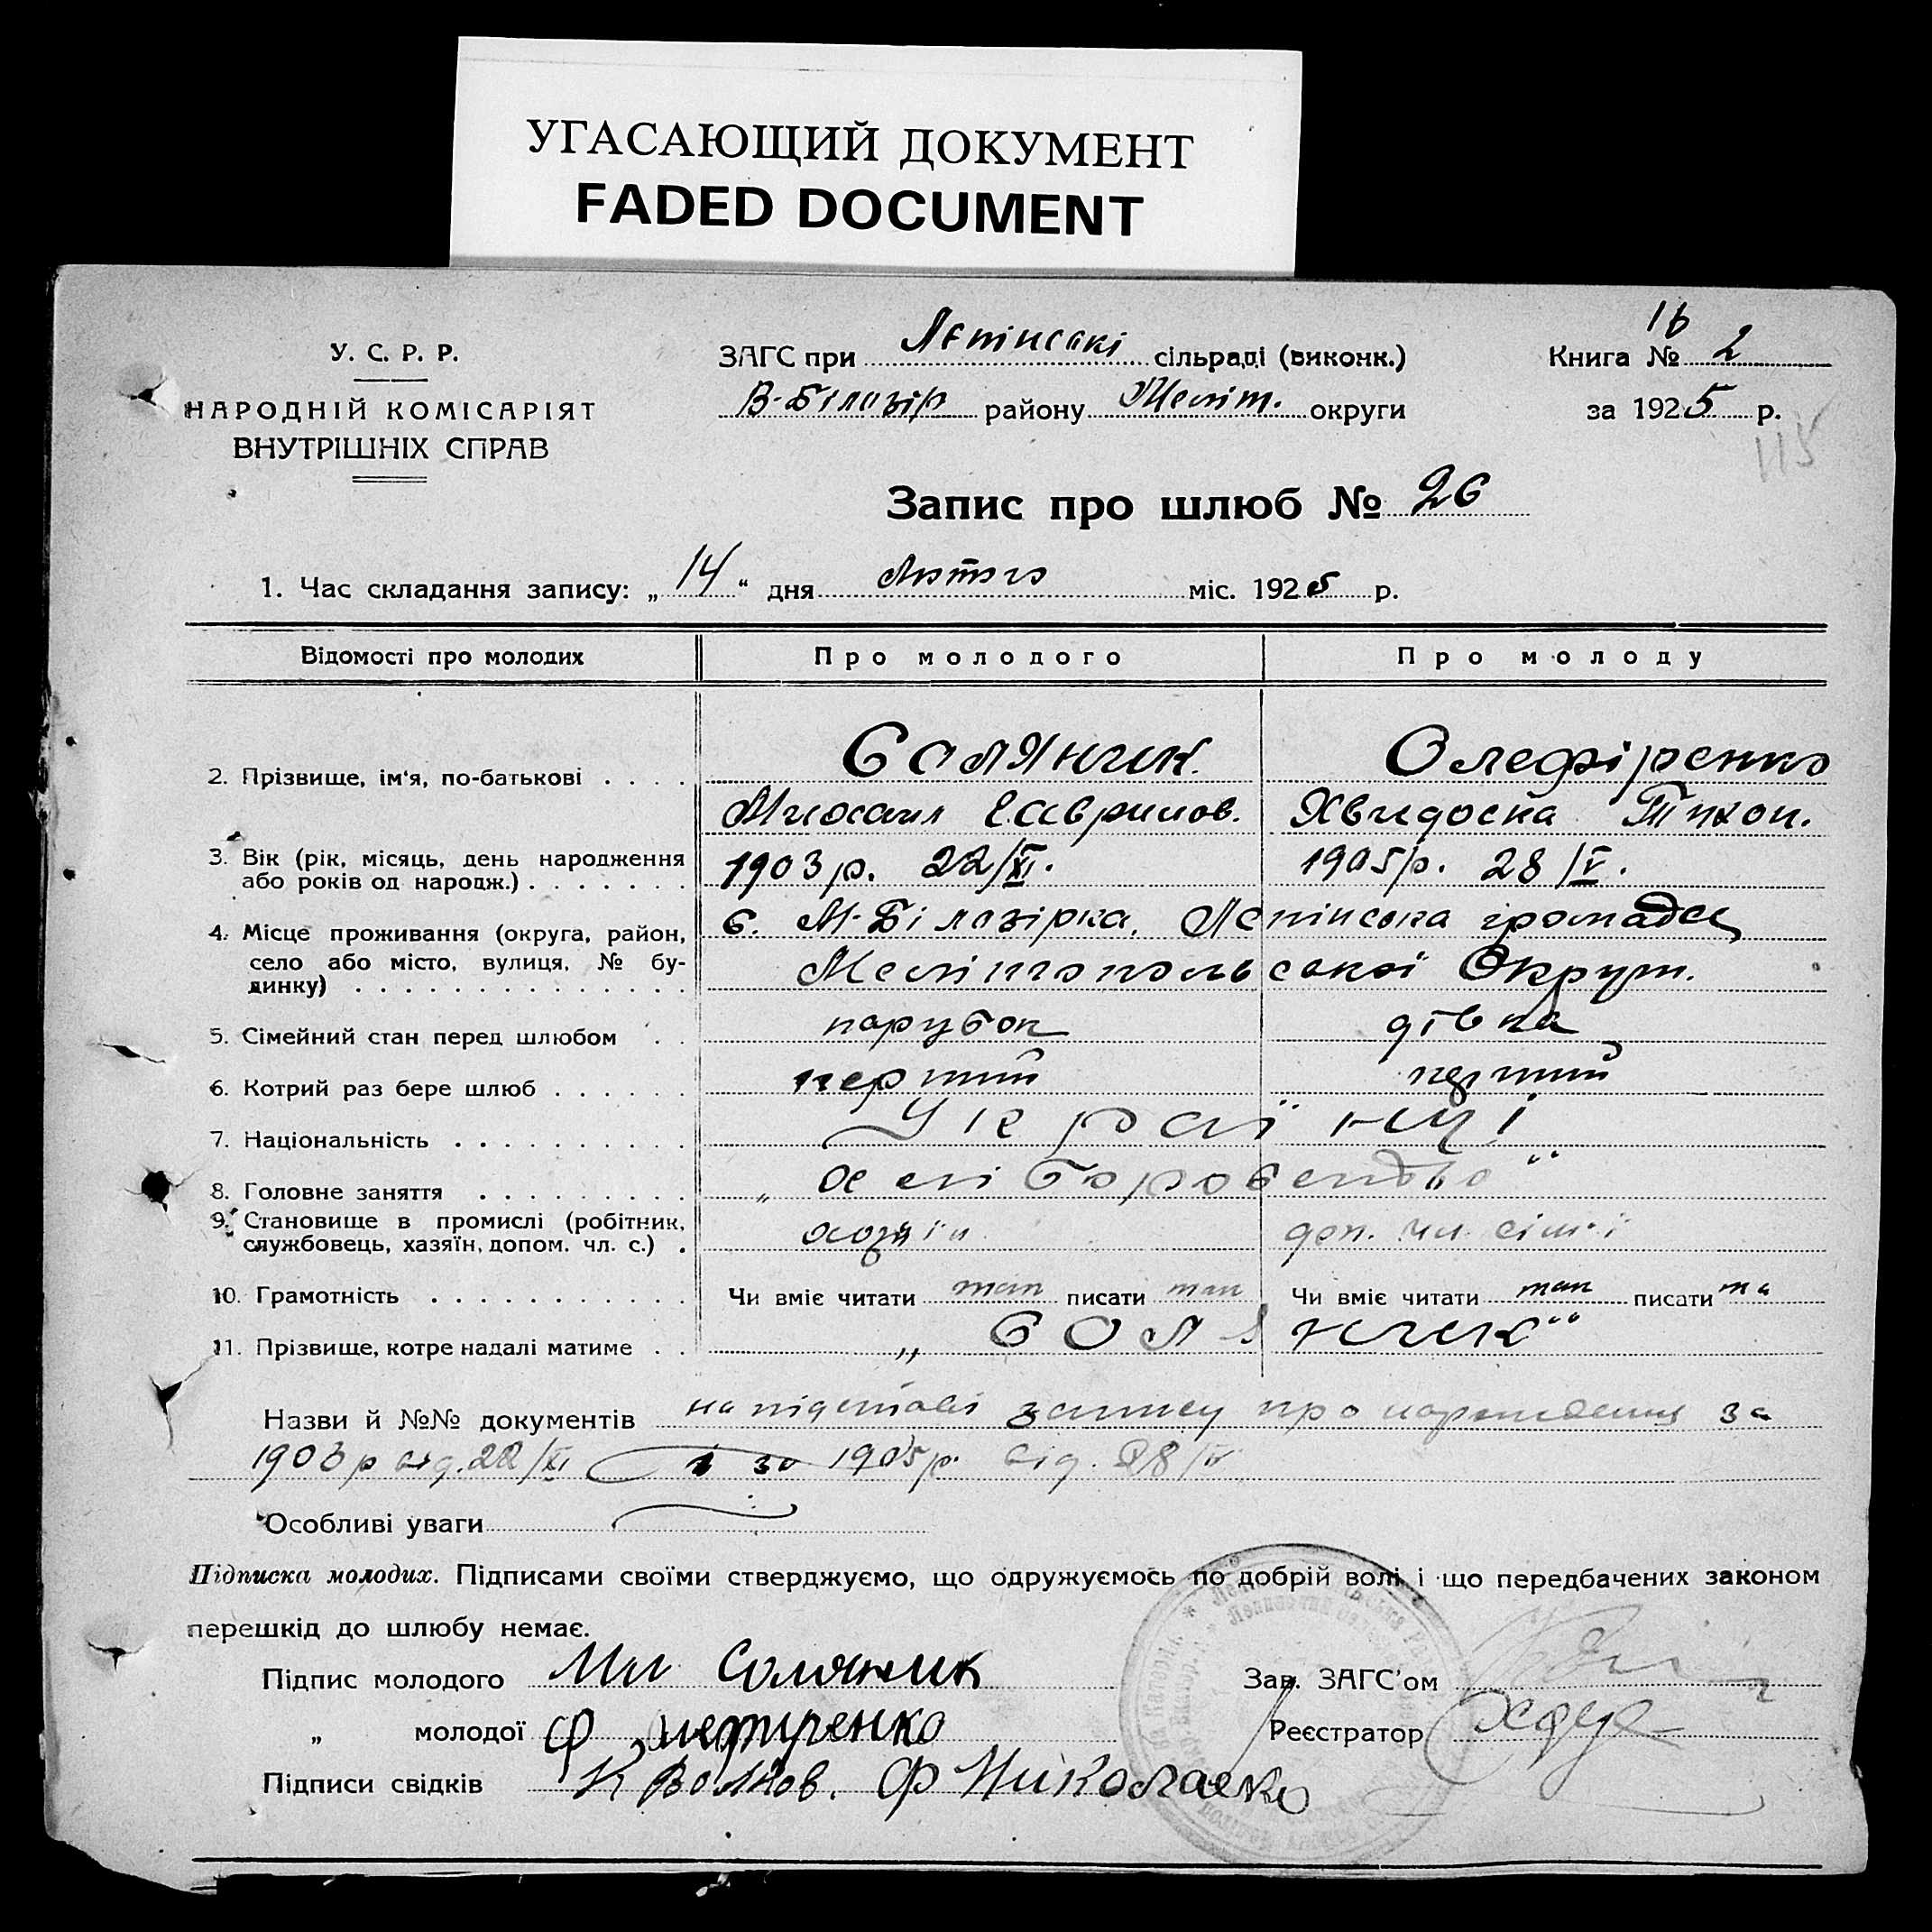 УГАСАЮЩИЙ ДОКУМЕНТ
FADED DOCUMENT
У. С. Р. Р.
НАРОДНІЙ КОМІСАРІЯТ
ВНУТРІШНІХ СПРАВ
ЗАГС при Лєпінські сільраді (виконк.)
В-Білозір району Меліт. округи
16
Книга № 2
за 1925 р.
115
Запис про шлюб № 26
1. Час складання запису: „14“ дня Лютого міс. 1925 р.
Відомості про молодих Про молодого Про молоду
2. Прізвище, ім'я, по-батькові . . . . Солянник. Олефіренко
Михаил Гаврилов. Хвидоска Тихон.
3. Вік (рік, місяць, день народження
або років од народж.) . . . . . . . 1903 р. 22/XI. 1905 р. 28/V.
4. Місце проживання (округа, район,
село або місто, вулиця, № бу-
динку) . . . . . . . . . . . . . .
с. М-Білозірка, Лєпінська громада
Мелітопольської Округи.
5. Сімейний стан перед шлюбом . . парубок дівка
6. Котрий раз бере шлюб . . . . . . перший перший
7. Національність . . . . . . . . . . Українці
8. Головне заняття . . . . . . . . . „хліборобство“
9. Становище в промислі (робітник,
службовець, хазяїн, допом. чл. с.) . хозяїн доп. чл. сім'ї
10. Грамотність . . . . . . . . . . . Чи вміє читати так писати так Чи вміє читати так писати та
11. Прізвище, котре надалі матиме . . „Солянник“
Назви й №№ документів на підставі запису про народження за
1903 р від. 22/XI і за 1905 р. від. 28/V
Особливі уваги
Підписка молодих. Підписами своїми стверджуємо, що одружуємось по добрій волі і що передбачених законом
перешкід до шлюбу немає.
Підпис молодого Ми Солянник
„ молодої Ф
Підписи свідків К Волков. Ф Николаенко
Зав. ЗАГС'ом
Реєстратор